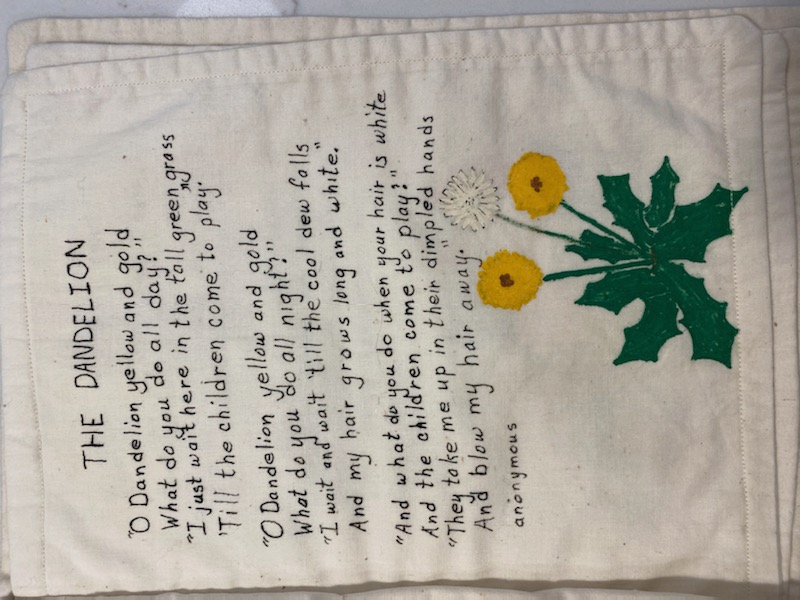 THE DANDELION
"O Dandelion yellow and gold
What do you do all day?"
"I just wait here in the tall green grass
'Till the children come to play."
"O Dandelion yellow and gold
What do you do all night?"
"I wait and wait 'till the cool dew falls"
And my hair grows long and white.
"And what do you do when your hair is white
And the children come to play?"
"They take me up in their dimpled hands
And blow my hair away."
anonymous